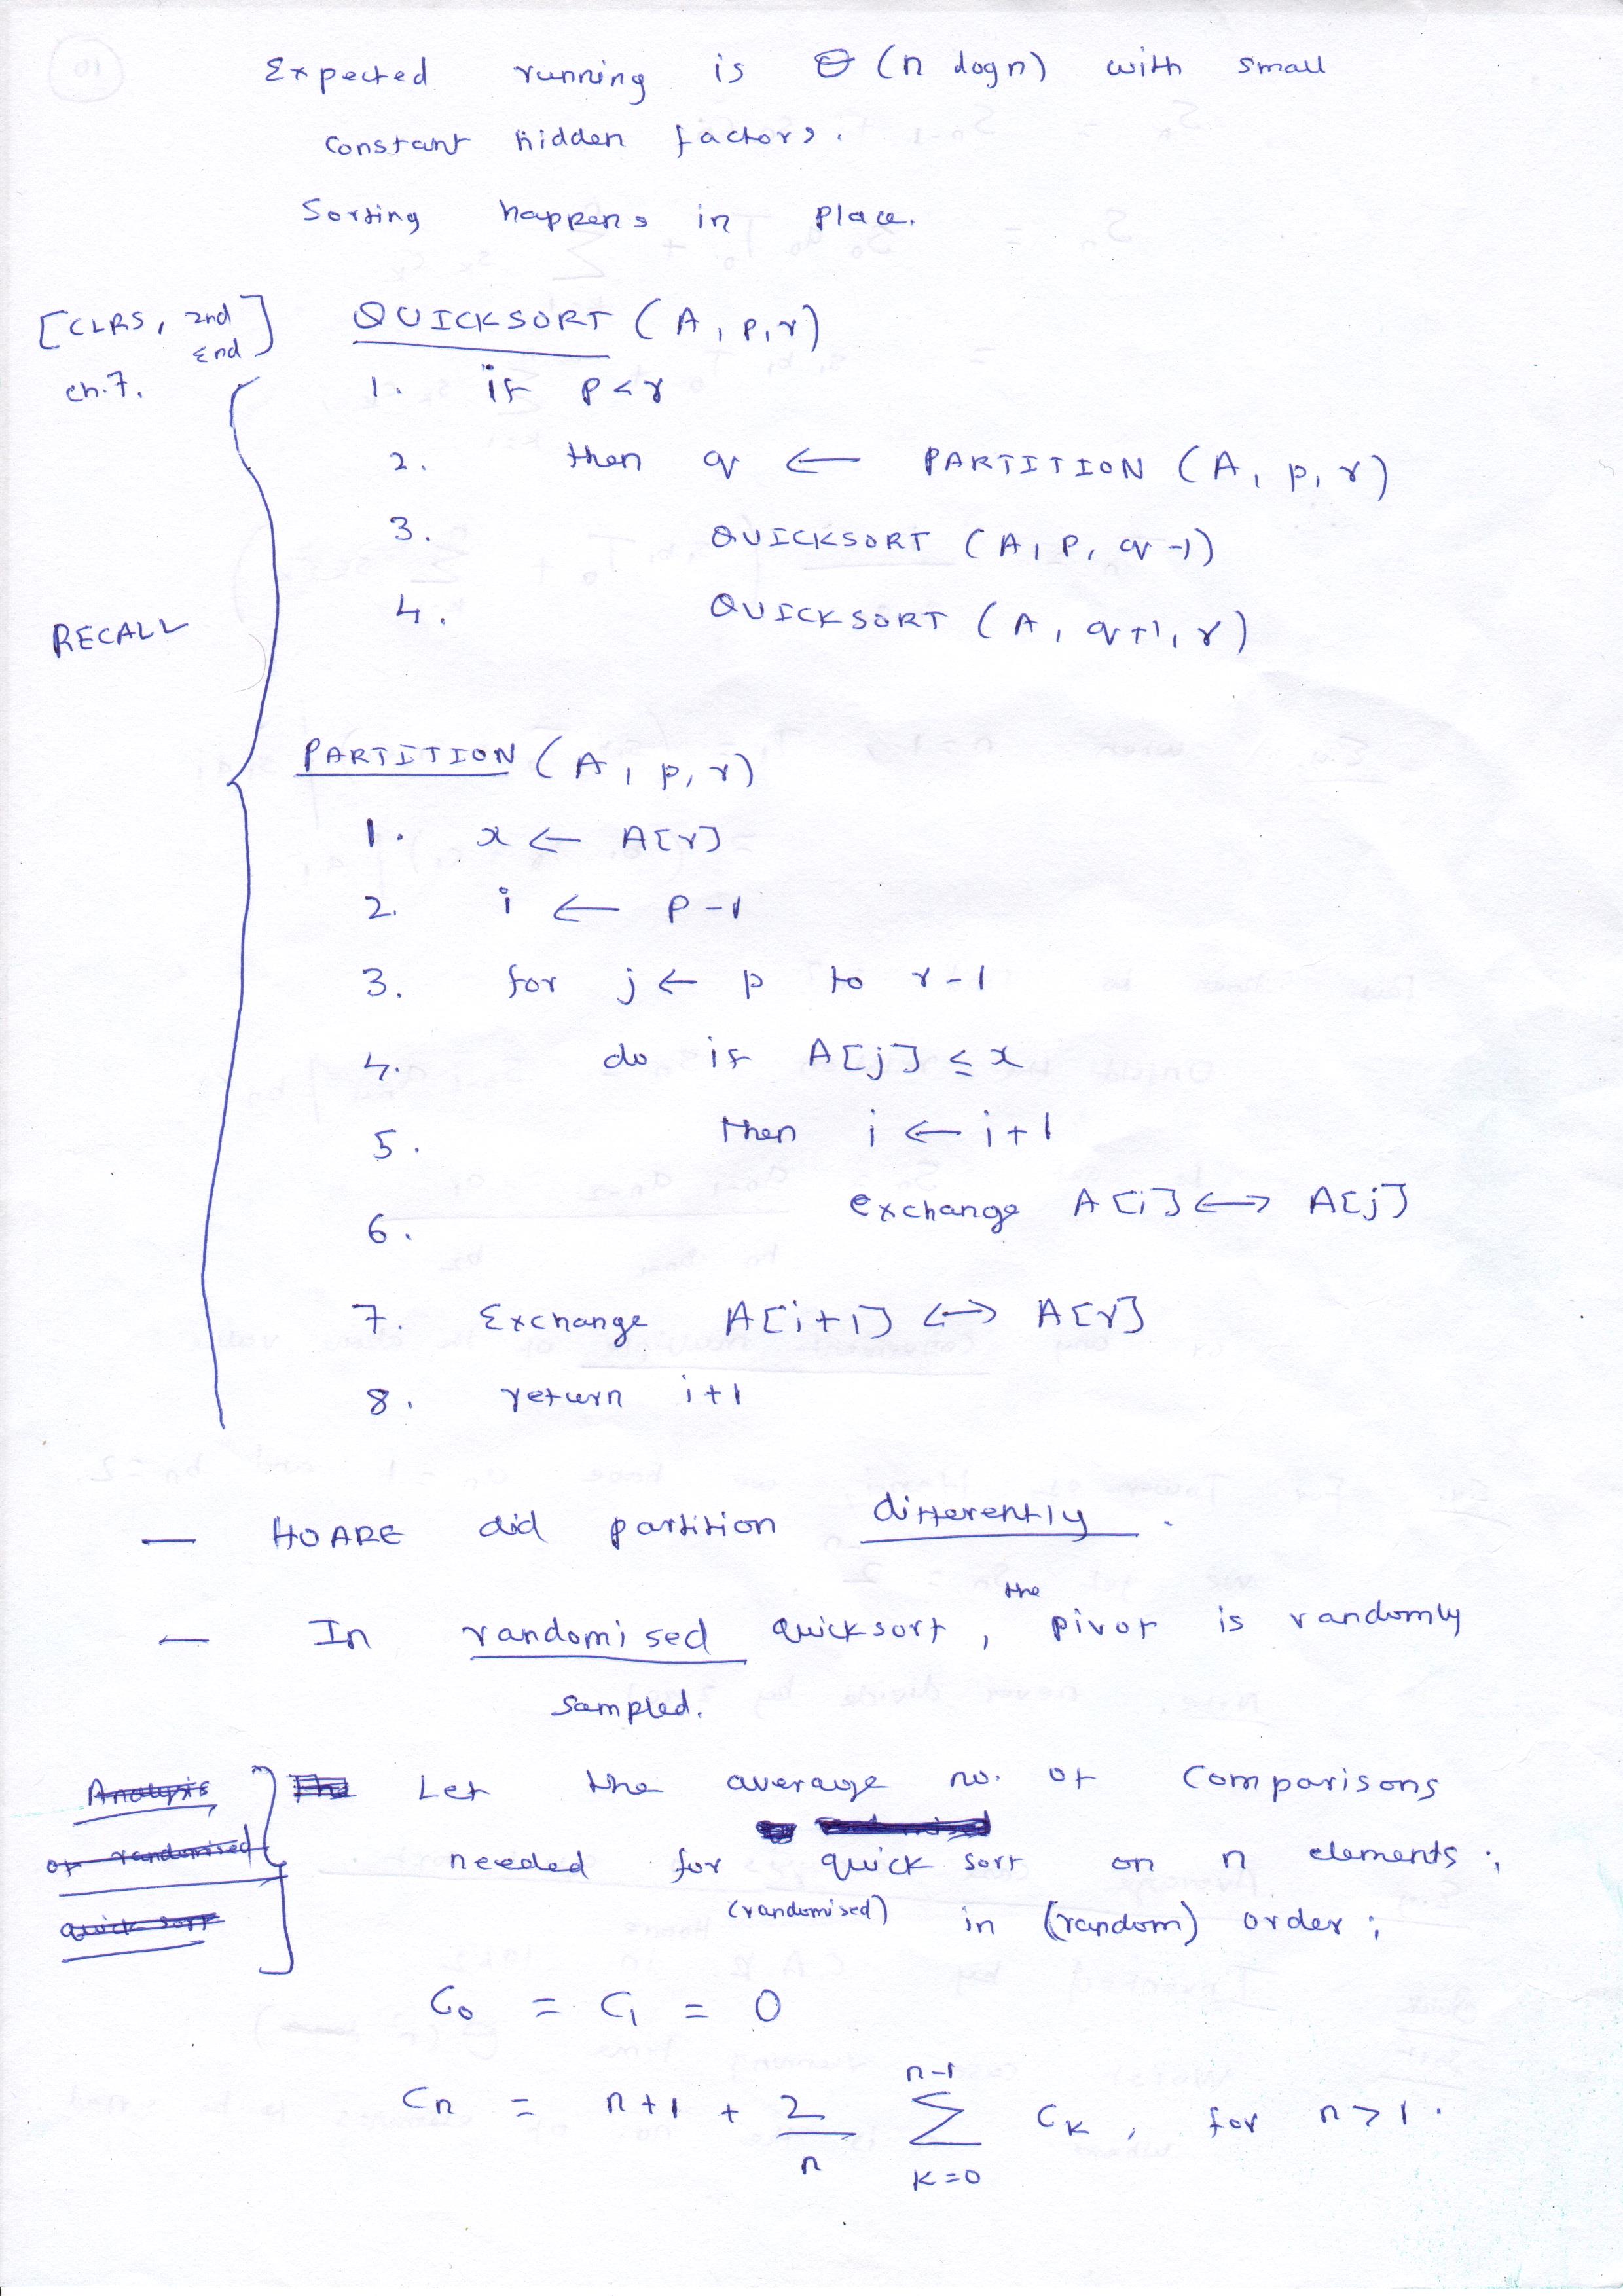 Expected running is Θ (n logn) with small
constant hidden factors.
Sorting happens in place.
[CLRS, 2nd End] QUICKSORT (A, p, r)
ch.7. 1. if p < r
2. then q ← PARTITION (A, p, r)
3. QUICKSORT (A, p, q-1)
4. QUICKSORT (A, q+1, r)
RECALL
PARTITION (A, p, r)
1. x ← A[r]
2. i ← p-1
3. for j ← p to r-1
4. do if A[j] ≤ x
5. then i ← i+1
6. exchange A[i] ↔ A[j]
7. Exchange A[i+1] ↔ A[r]
8. return i+1
— HOARE did partition differently.
— In randomised quicksort, the pivot is randomly
sampled.
Analysis The Let the average no. of comparisons
of randomised needed for quick sort on n elements ;
quick sort (randomised) in (random) order ;
C₀ = C₁ = 0
Cn = n+1 + 2/n ∑_{k=0}^{n-1} C_k, for n>1.